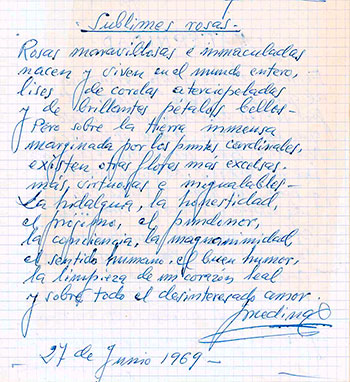 Sublimes rosas.-
Rosas maravillosas e inmaculadas
nacen y viven en el mundo entero,
de corolas aterciopeladas
y de brillantes pétalos bellos-
Pero sobre la tierra inmensa
marginada por los puntos cardinales,
existen otras flores más excelsas.
más, virtuosas e inigualables-
La hidalguía, la honestidad,
el prójimo, el pundonor,
la conciencia, la magnanimidad,
el sentido humano, el buen humor,
la limpieza de un corazón leal
y sobre todo el desinteresado amor.
27 de Junio 1969-